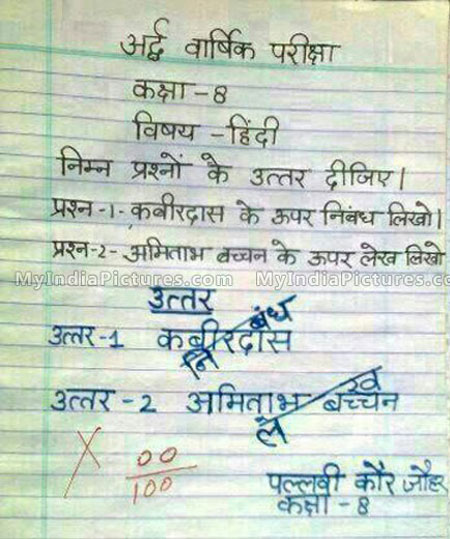 अर्द्ध वार्षिक परीक्षा
कक्षा - 8
विषय - हिंदी
निम्न प्रश्नों के उत्तर दीजिए।
प्रश्न -1- कबीरदास के ऊपर निबंध लिखो।
प्रश्न-2- अमिताभ बच्चन के ऊपर लेख लिखो
MyIndiaPictures.com MyIndiaPictures.com
उत्तर
उत्तर-1 कबीरदास
निबंध
उत्तर - 2 अमिताभ बच्चन
लेख
X 00
100
पल्लवी कौर जौहर
कक्षा - 8